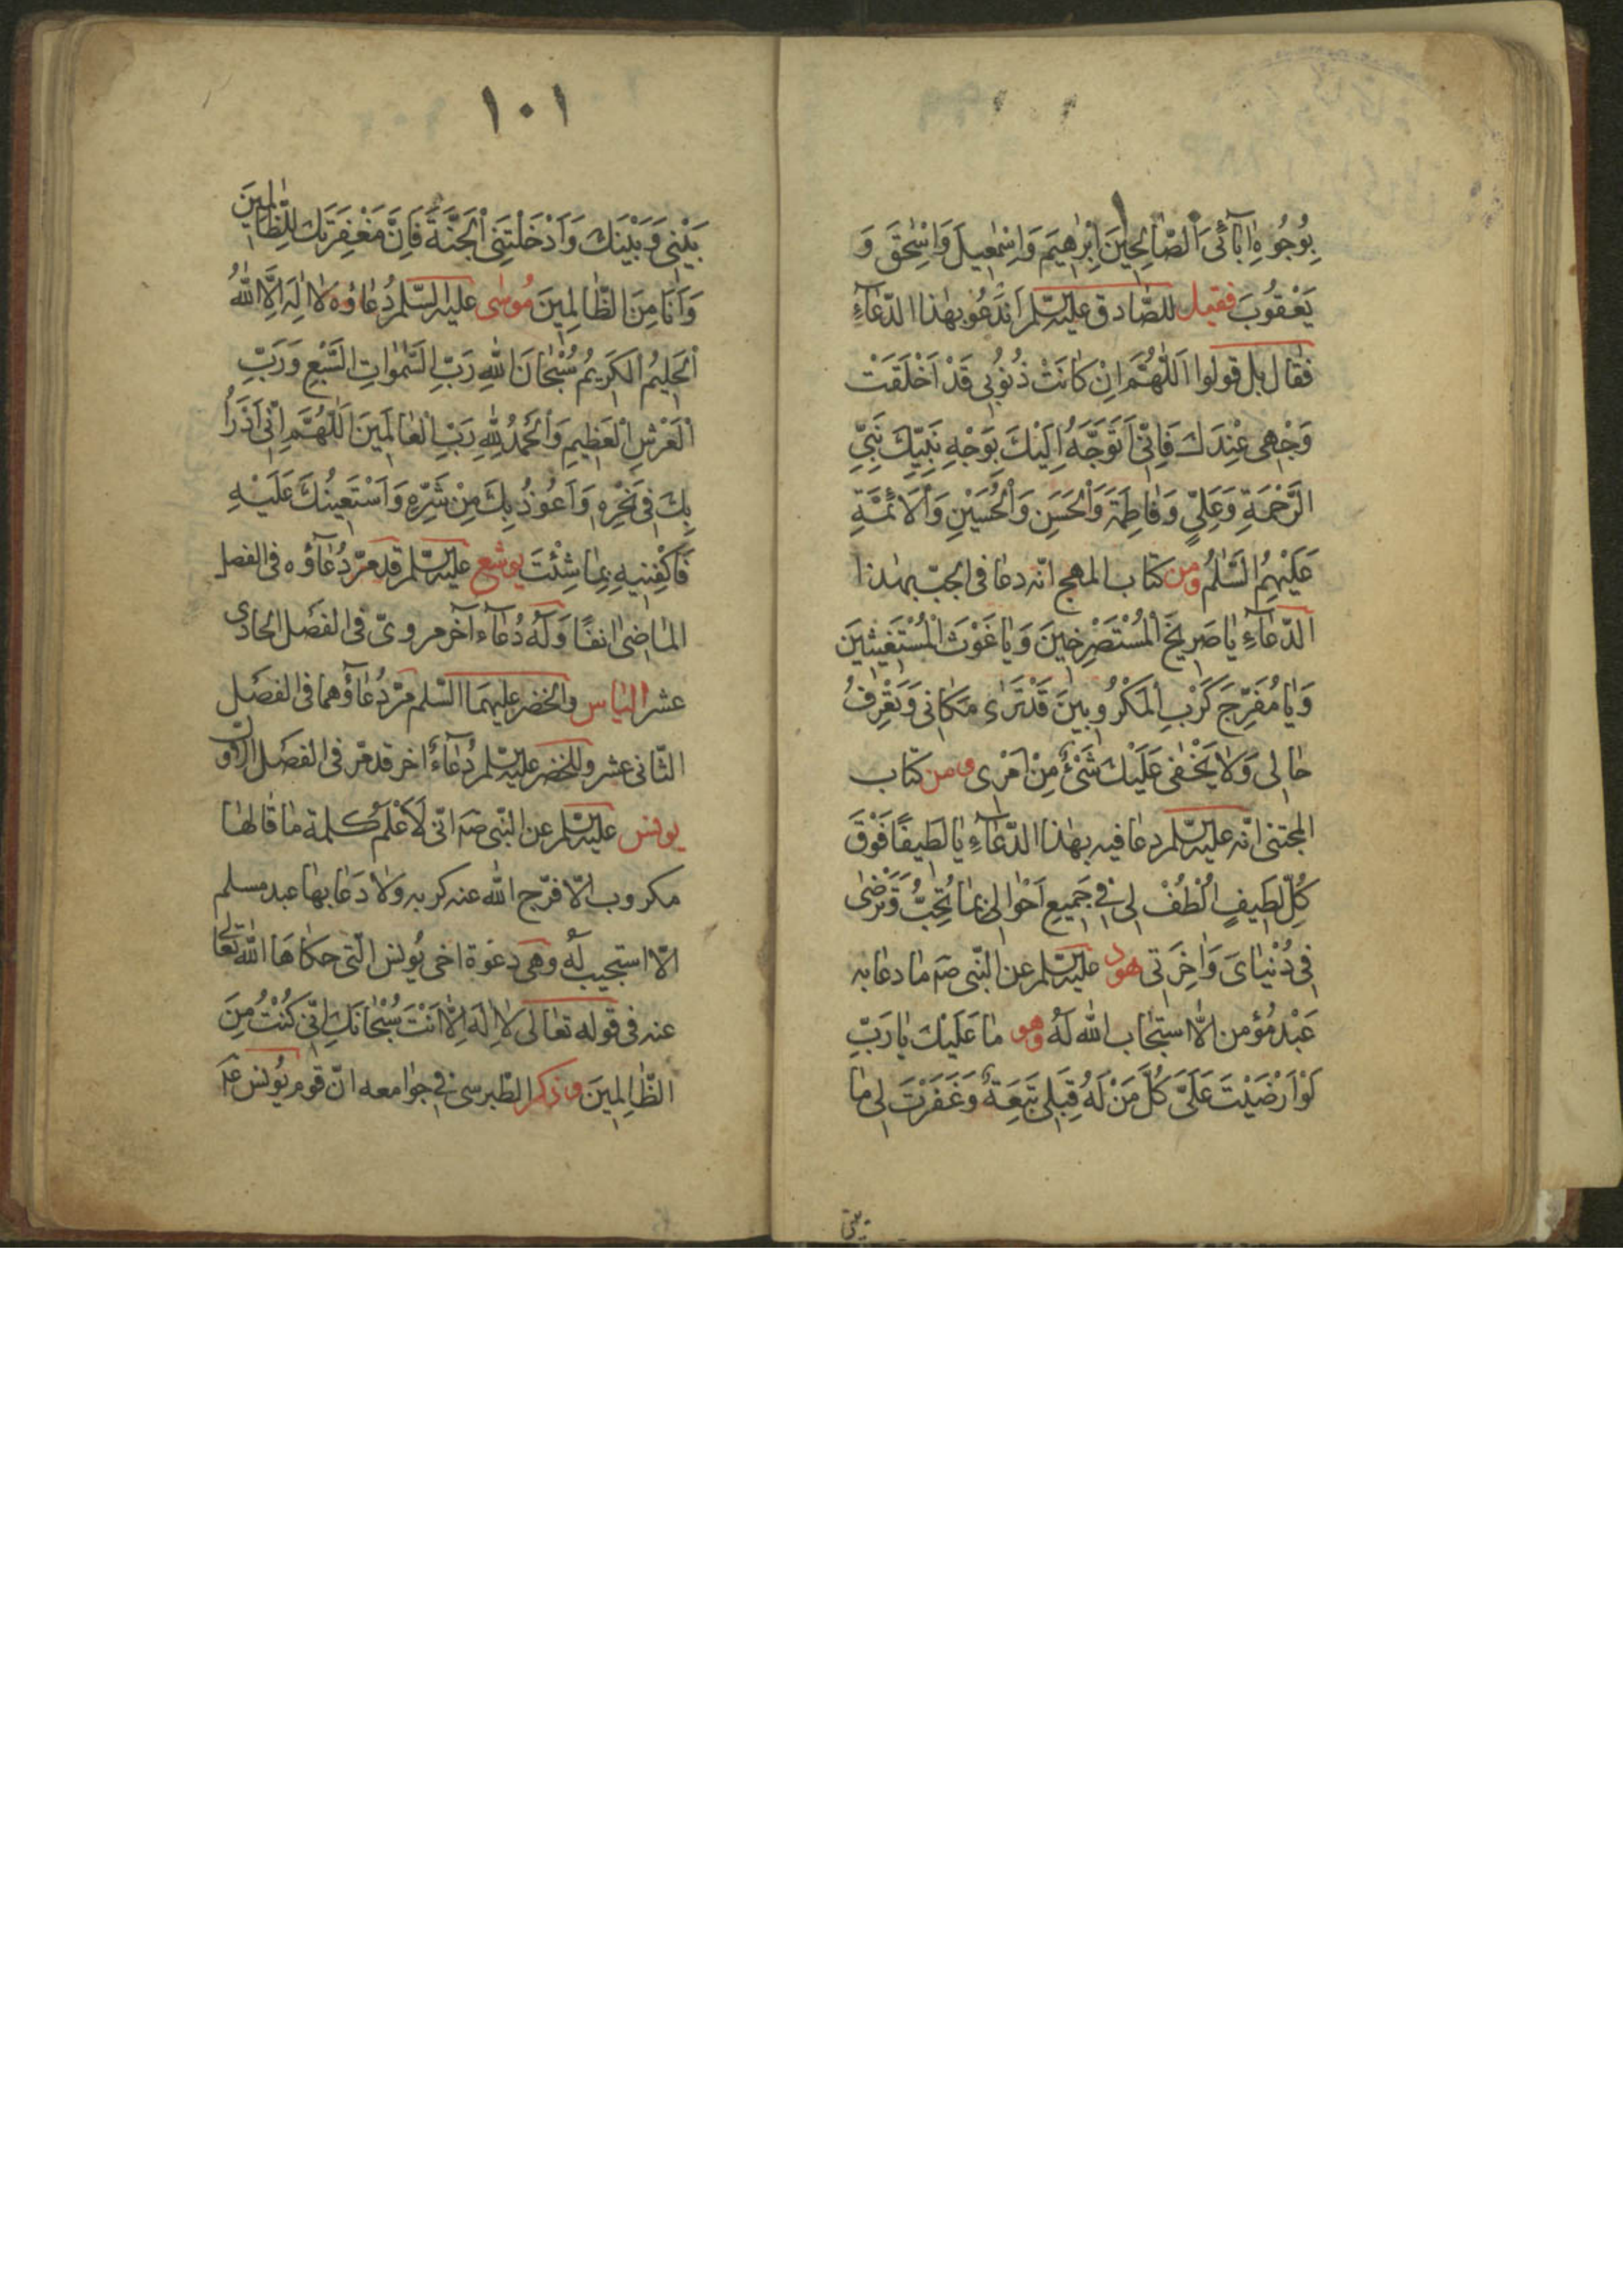 بِوُجُوهِ اٰبَآئِىَ الصّٰالِحٖينَ اِبْرٰهيمَ وَاِسْمٰعيلَ وَاِسْحٰقَ وَ
يَعْقُوبَ فقيل للصّادق عليه السّلم اَنَدْعُو بهٰذا الدّعآءِ
فقال بل قولوا اَللّٰهُمَّ اِنْ كٰانَتْ ذُنُوبى قَدْ اَخْلَقَتْ
وَجْهى عِنْدَكَ فَاِنّى اَتَوَجَّهُ اِلَيْكَ بِوَجْهِ نَبِيِّكَ نَبِىِّ
الرَّحْمَةِ وَعَلِىٍّ وَفٰاطِمَةَ وَالْحَسَنِ وَالْحُسَيْنِ وَالْاَئِمَّةِ
عَلَيْهِمُ السَّلٰمُ ومن كتاب المهج انّه دعا فى الجبّ بهٰذا
الدّعآءِ يٰا صَريخَ الْمُسْتَصْرِخينَ وَيٰا غَوْثَ الْمُسْتَغيثينَ
وَيٰا مُفَرِّجَ كَرْبِ الْمَكْرُوبينَ قَدْ تَرٰى مَكٰانى وَتَعْرِفُ
حٰالى وَلٰا يَخْفٰى عَلَيْكَ شَىْءٌ مِنْ اَمْرى ومن كتاب
المجتنى انّه عليه السّلم دعا فيه بهٰذا الدّعآءِ يٰا لَطيفًا فَوْقَ
كُلِّ لَطيفٍ اُلْطُفْ لى فى جَميعِ اَحْوٰالى بِمٰا تُحِبُّ وَتَرْضٰى
فى دُنْيٰاىَ وَاٰخِرَتى هود عليه السّلم عن النّبى صم ما دعا به
عَبْد مُؤمن الّا استجاب الله لَهُ وهو مٰا عَلَيْكَ يٰا رَبِّ
لَوْ اَرْضَيْتَ عَلَىَّ كُلَّ مَنْ لَهُ قِبَلى تَبِعَةٌ وَغَفَرْتَ لى مٰا
بينى
١٠١
بَيْنى وَبَيْنَكَ وَاَدْخَلْتَنِى الْجَنَّةَ فَاِنَّ مَغْفِرَتَكَ لِلظّٰالِمينَ
وَاَنَا مِنَ الظّٰالِمينَ مُوسٰى عليه السّلم دُعٰاؤه لٰا اِلٰهَ اِلَّا اللّٰهُ
الْحَليمُ الْكَريمُ سُبْحٰانَ اللّٰهِ رَبِّ السَّمٰوٰاتِ السَّبْعِ وَرَبِّ
الْعَرْشِ الْعَظيمِ وَالْحَمْدُ لِلّٰهِ رَبِّ الْعٰالَمينَ اَللّٰهُمَّ اِنّى اَدْرَأُ
بِكَ فى نَحْرِهِ وَاَعُوذُ بِكَ مِنْ شَرِّهِ وَاَسْتَعينُكَ عَلَيْهِ
فَاكْفِنيهِ بِمٰا شِئْتَ يوشع عليه السّلم قد مرّ دُعٰآؤه فى الفصل
الماضى انفًا وَلَهُ دُعآء آخر مروىّ فى الفصل الحادى
عشر الياس والخضر عليهما السّلم مرّ دُعٰاؤهما فى الفصل
الثّانى عشر وللخضر عليه السّلم دُعٰاءٌ اخر قد مرّ فى الفصل الاوّل
يونس عليه السّلم عن النّبى صم انّى لَاَعْلَمُ كلمة ما قالها
مكروب الّا فرّج الله عنه كربه ولا دَعا بها عبد مسلم
الّا استجيب له وهى دعوة اخى يُونس الّتى حكاهَا اللّه تعالى
عنه فى قوله تعالى لٰا اِلٰهَ اِلّٰا اَنْتَ سُبْحٰانَكَ اِنّى كُنْتُ مِنَ
الظّٰالِمينَ وذكر الطّبرسى فى جوامعه انّ قوم يُونس عَلَ